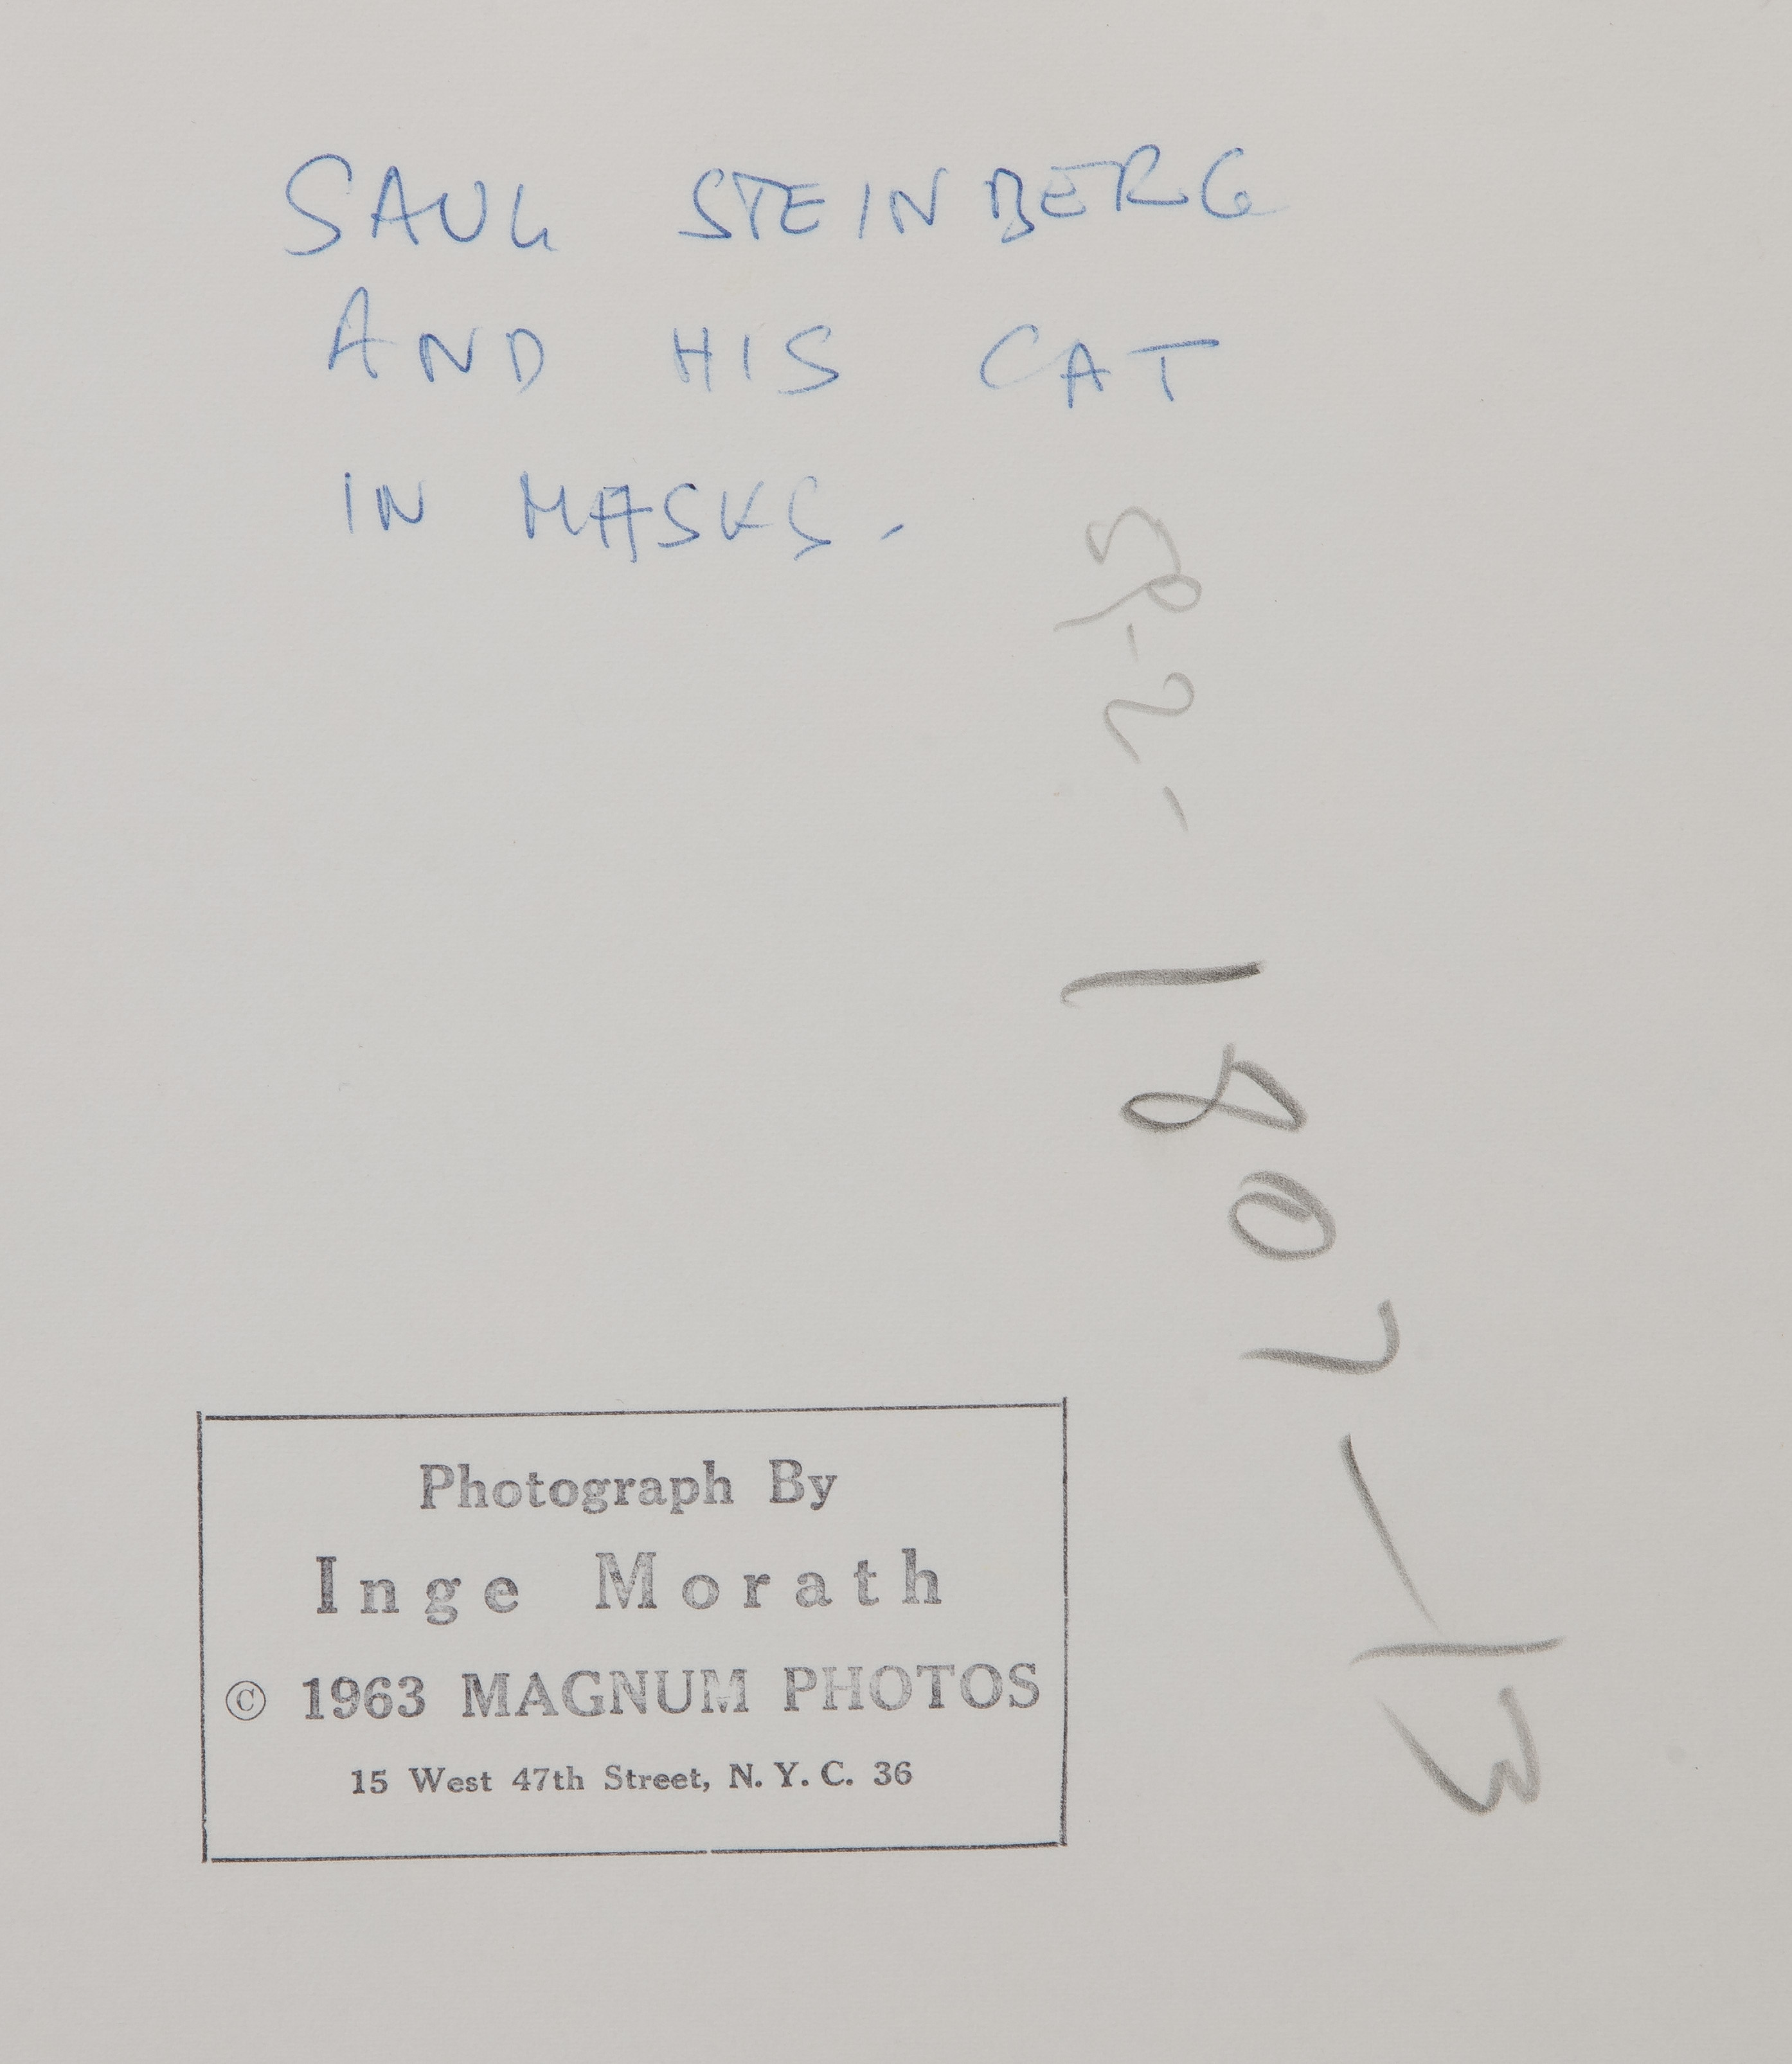 SAUL STEINBERG
AND HIS CAT
IN MASKS.
1807-13
Photograph By
Inge Morath
© 1963 MAGNUM PHOTOS
15 West 47th Street, N.Y.C. 36